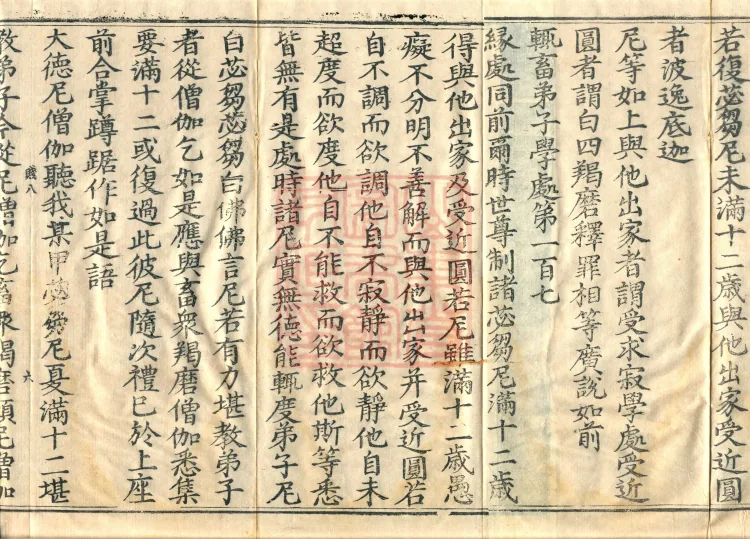 若復苾芻尼未滿十二歲與他出家受近圓
者波逸底迦
尼等如上與他出家者謂受求寂學處受近
圓者謂白四羯磨釋罪相等廣說如前
輒畜弟子學處第一百七
緣處同前爾時世尊制諸苾芻尼滿十二歲
得與他出家及受近圓若尼雖滿十二歲愚
癡不分明不善解而與他出家并受近圓若
自不調而欲調他自不寂靜而欲靜他自未
超度而欲度他自不能救而欲救他斯等悉
皆無有是處時諸尼實無德能輒度弟子尼
白苾芻苾芻白佛佛言尼若有力堪教弟子
者從僧伽乞如是應與畜衆羯磨僧伽悉集
要滿十二或復過此彼尼隨次禮已於上座
前合掌蹲踞作如是語
大德尼僧伽聽我某甲苾芻尼夏滿十二堪
賤八
六
教弟子今從尼僧伽乞畜衆羯磨願尼僧伽